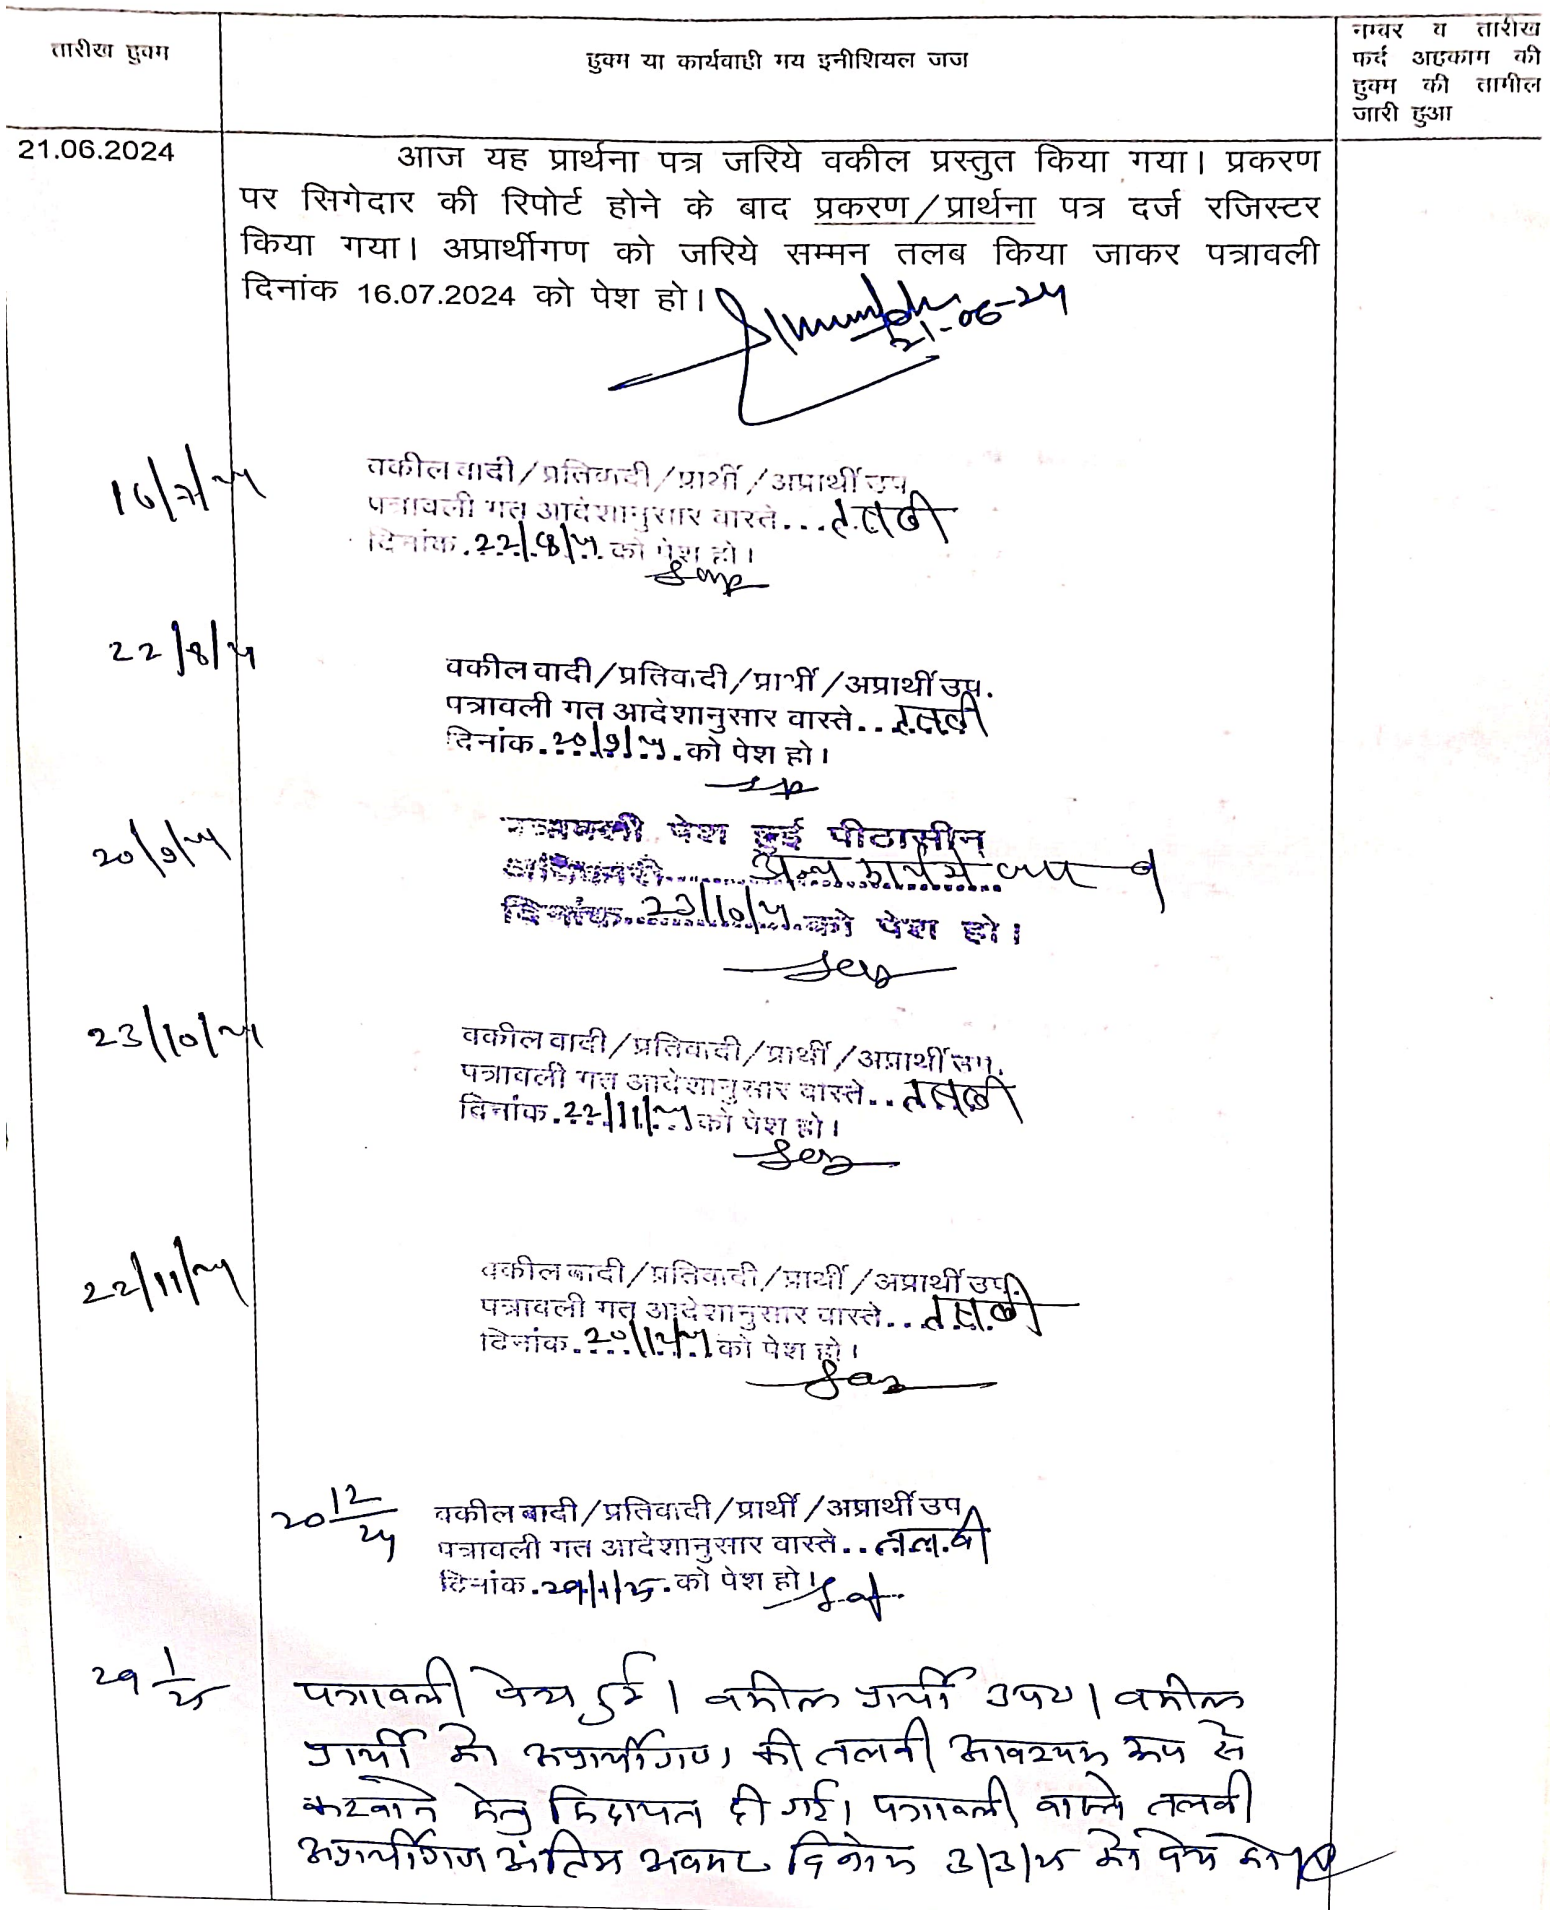 तारीख हुक्म
हुक्म या कार्यवाही मय इनीशियल जज
नम्बर व तारीख
फर्द अहकाम की
हुक्म की तामील
जारी हुआ
21.06.2024
आज यह प्रार्थना पत्र जरिये वकील प्रस्तुत किया गया। प्रकरण
पर सिगेदार की रिपोर्ट होने के बाद प्रकरण/प्रार्थना पत्र दर्ज रजिस्टर
किया गया। अप्रार्थीगण को जरिये सम्मन तलब किया जाकर पत्रावली
दिनांक 16.07.2024 को पेश हो।
21-06-24
16/7/24
वकील वादी/प्रतिवादी/प्रार्थी/अप्रार्थी उप.
पत्रावली गत आदेशानुसार वास्ते...तलबी
दिनांक.22/8/24.को पेश हो।
22/8/24
वकील वादी/प्रतिवादी/प्रार्थी/अप्रार्थी उप.
पत्रावली गत आदेशानुसार वास्ते..तलबी
दिनांक.20/9/24.को पेश हो।
20/9/24
पत्रावली पेश हुई पीठासीन
अधिकारी......अन्य कार्य में व्यस्त
दिनांक..23/10/24..को पेश हो।
23/10/24
वकील वादी/प्रतिवादी/प्रार्थी/अप्रार्थी उप.
पत्रावली गत आदेशानुसार वास्ते..तलबी
दिनांक.22/11/24 को पेश हो।
22/11/24
वकील वादी/प्रतिवादी/प्रार्थी/अप्रार्थी उप.
पत्रावली गत आदेशानुसार वास्ते..तलबी
दिनांक.20/12/24.को पेश हो।
20 12/24
वकील वादी/प्रतिवादी/प्रार्थी/अप्रार्थी उप
पत्रावली गत आदेशानुसार वास्ते..तलबी
दिनांक.29/1/25.को पेश हो।
29 1/25
पत्रावली पेश हुई। वकील प्रार्थी उप०। वकील
प्रार्थी को अप्रार्थीगण की तलबी आवश्यक रूप से
करवाने हेतु हिदायत दी गई। पत्रावली वास्ते तलबी
अप्रार्थीगण अंतिम अवसर दिनांक 3/3/25 को पेश हो।